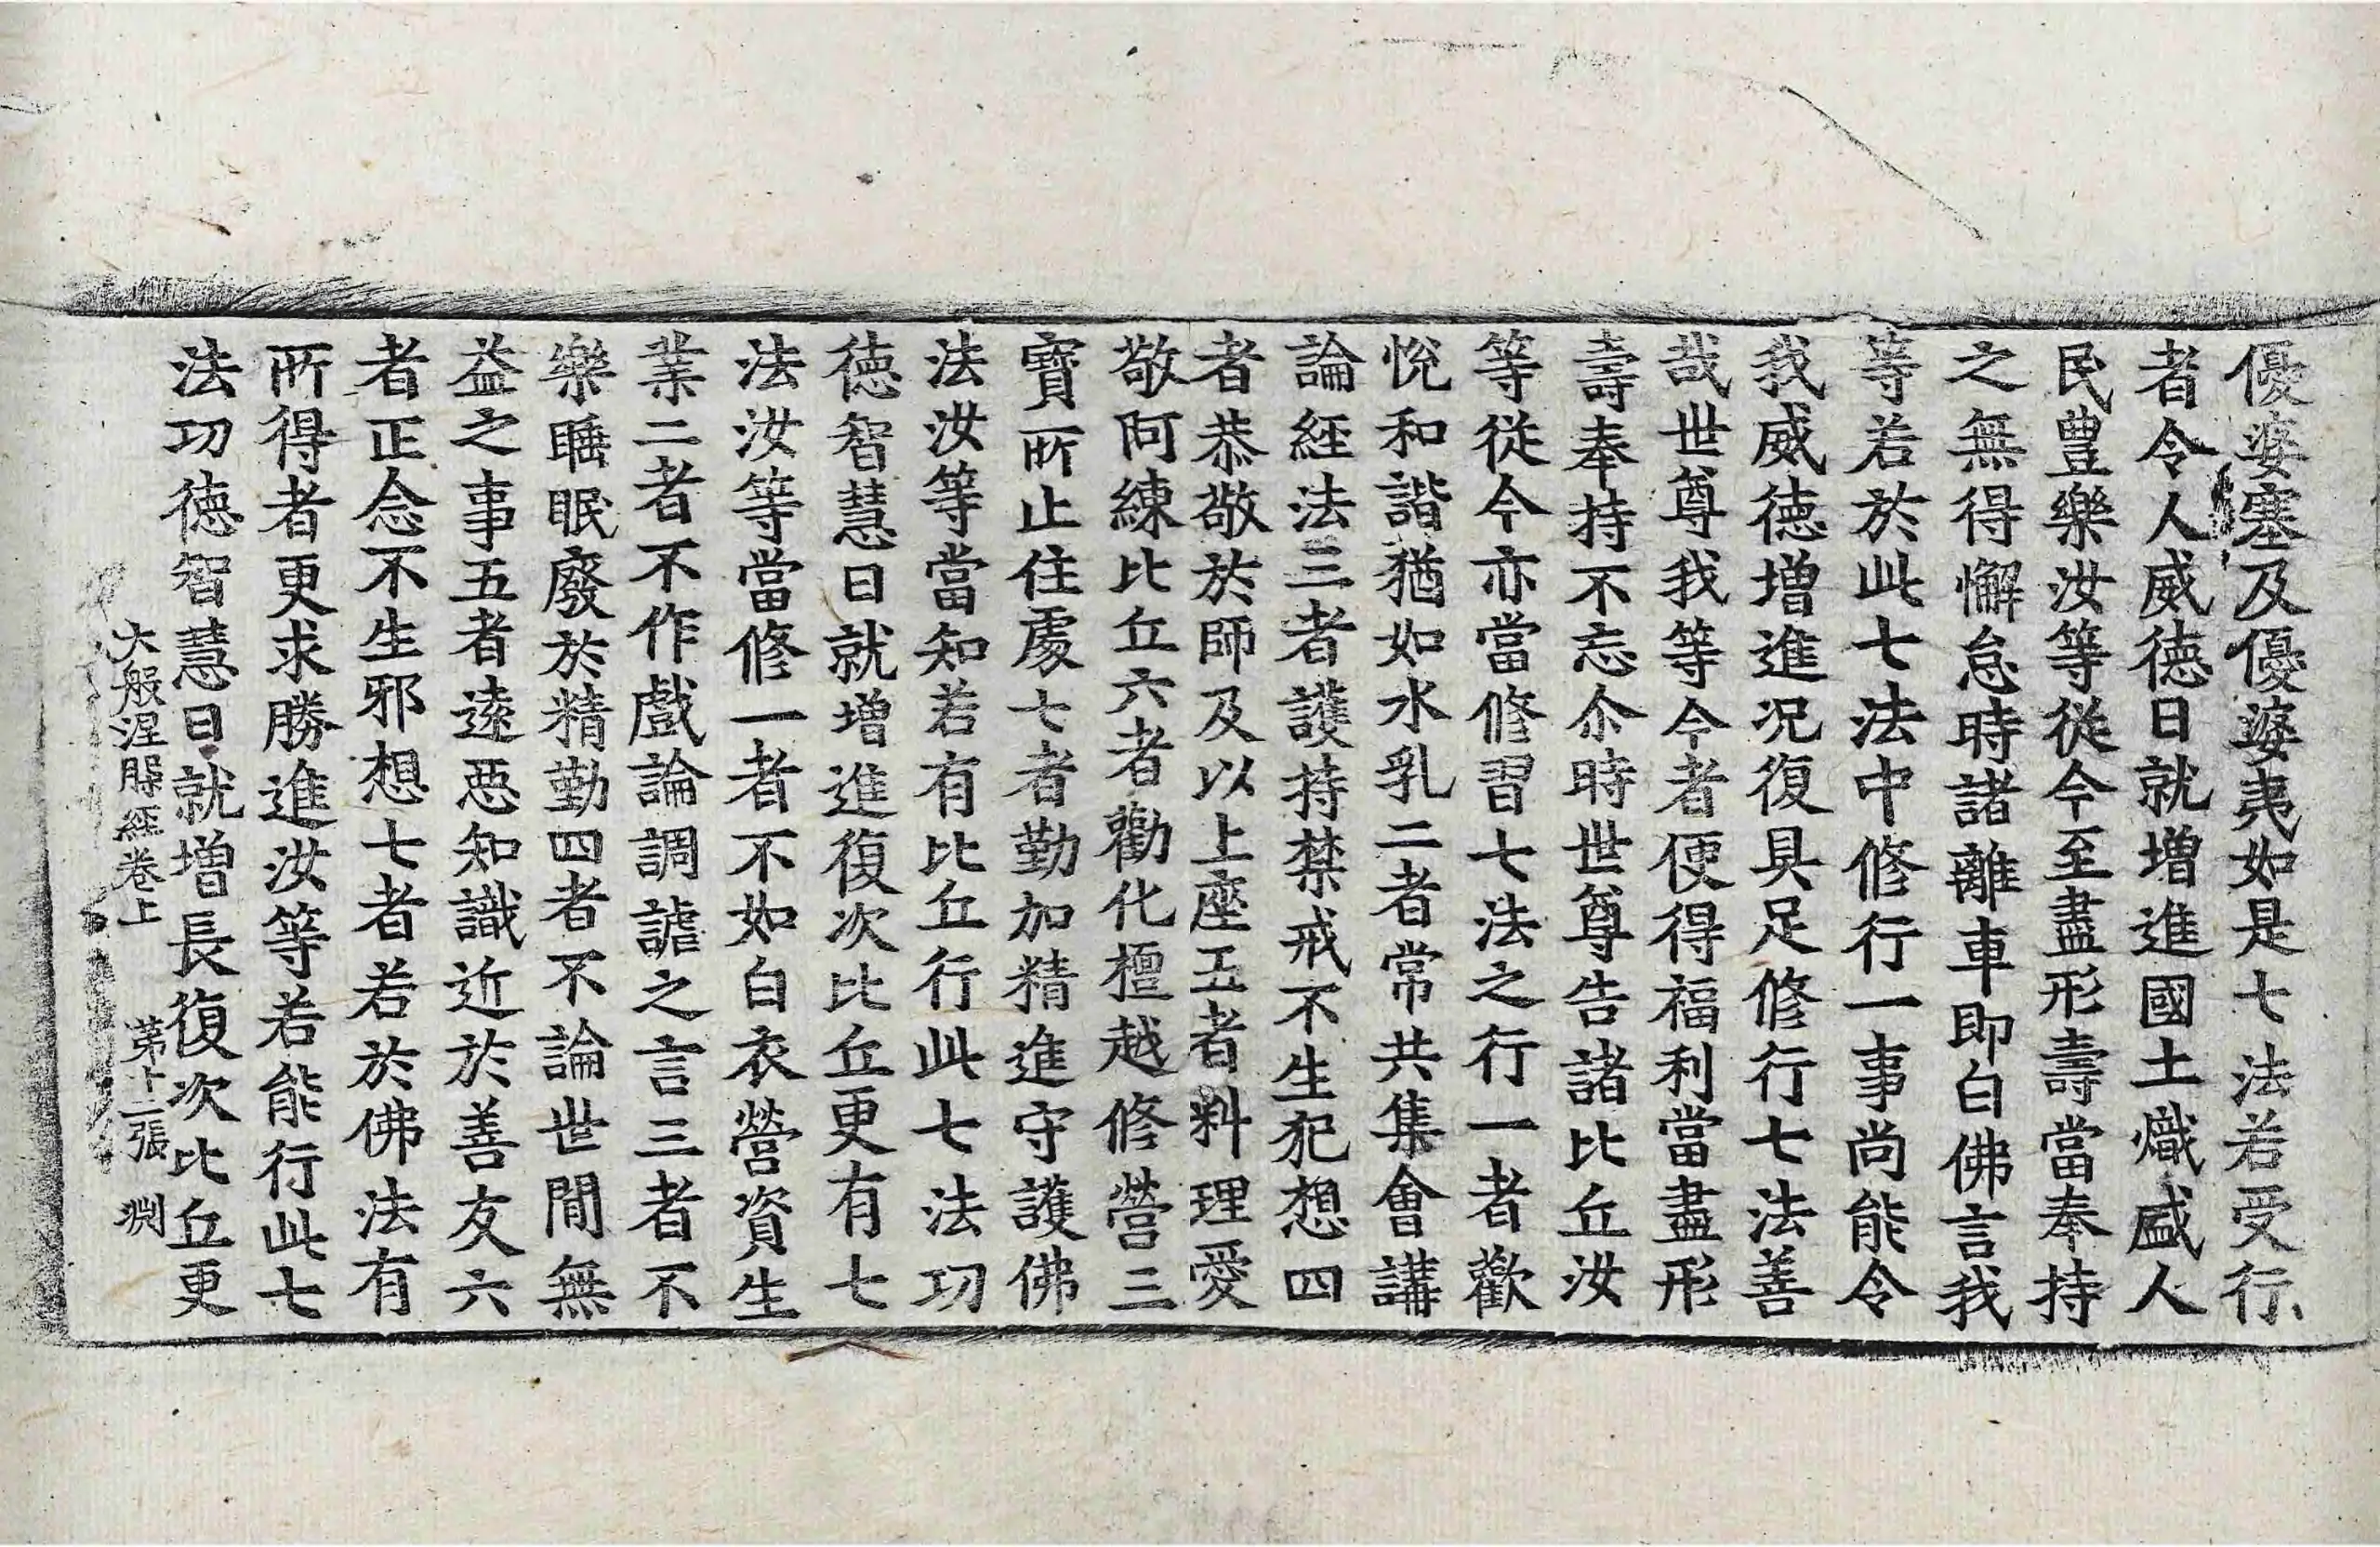 優婆塞及優婆夷如是七法若受行
者令人威德日就增進國土熾盛人
民豊樂汝等從今至盡形壽當奉持
之無得懈怠時諸離車即白佛言我
等若於此七法中修行一事尚能令
我威徳増進况復具足修行七法善
哉世尊我等今者便得福利當盡形
壽奉持不忘尒時世尊告諸比丘汝
等從今亦當修習七法之行一者歡
悅和諧猶如水乳二者常共集會講
論經法三者護持禁戒不生犯想四
者恭敬於師及以上座五者料理愛
敬阿練比丘六者勸化檀越修營三
寶所止住處七者勤加精進守護佛
法汝等當知若有比丘行此七法功
徳智慧日就増進復次比丘更有七
法汝等當修一者不如白衣營資生
業二者不作戲論調謔之言三者不
樂睡眠廢於精勤四者不論世閒無
益之事五者遠惡知識近於善友六
者正念不生邪想七者若於佛法有
所得者更求勝進汝等若能行此七
法功徳智慧日就増長復次比丘更
大般涅槃經卷上 第十二張 渕